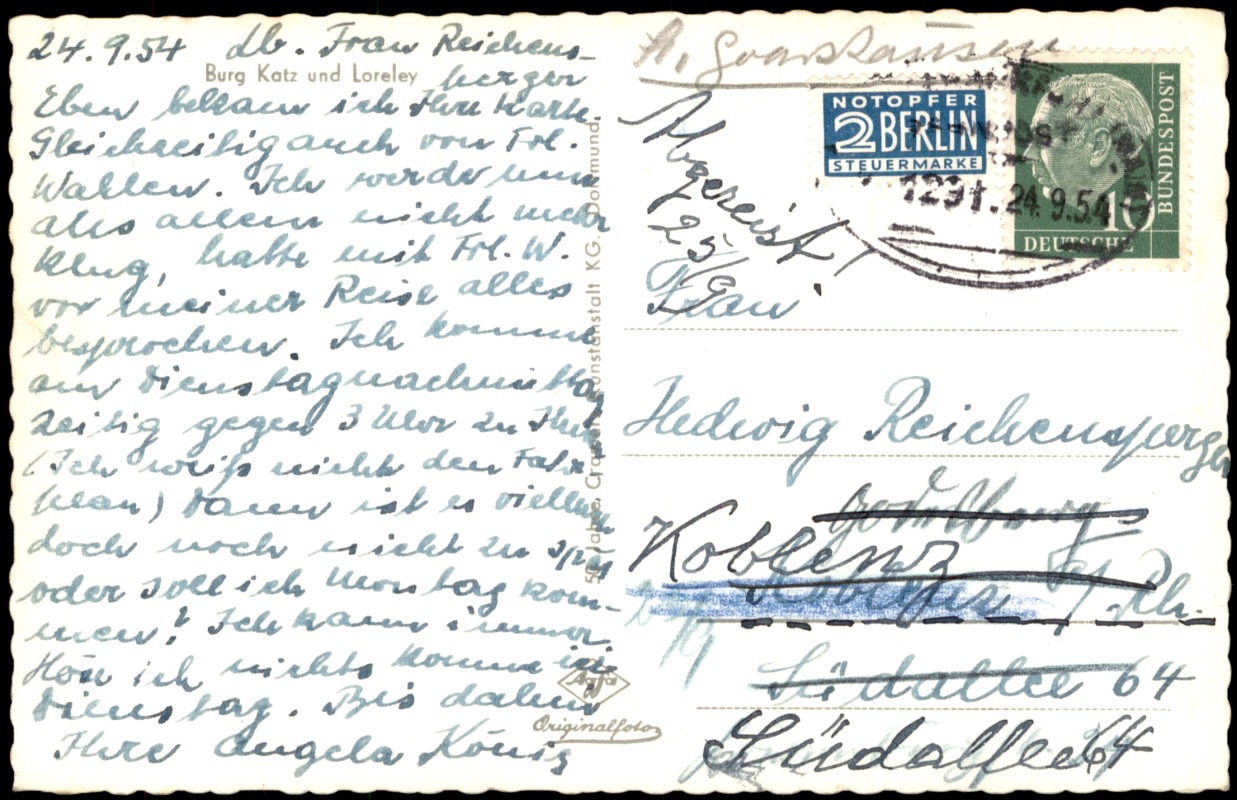 24.9.54 Lb. Frau Reichens-
berger
Burg Katz und Loreley
Eben bekam ich Ihre Karte.
Gleichzeitig auch von Frl.
Wallen. Ich werde nun
aus allem nicht mehr
klug, hatte mit Frl. W.
vor meiner Reise alles
besprochen. Ich komme
am Dienstagnachmittag
zeitig gegen 3 Uhr zu Ihnen
(Ich weiß nicht den Fahr-
plan) Dann ist es vielleicht
doch noch nicht zu spät
oder soll ich Montag kom-
men? Ich kann immer
Höre ich nichts komme ich
Dienstag. Bis dahin
Ihre Angela König
50 Jahre Kunstanstalt KG. Dortmund
Agfa
Originalfoto
St. Goarshausen
NOTOPFER
2 BERLIN
STEUERMARKE
DEUTSCHE
BUNDESPOST
10
1291 24.9.54
Abgereist!
25/9
Frau
Hedwig Reichensperger
Koblenz
a/Rh.
Südallee 64
Südallee 64